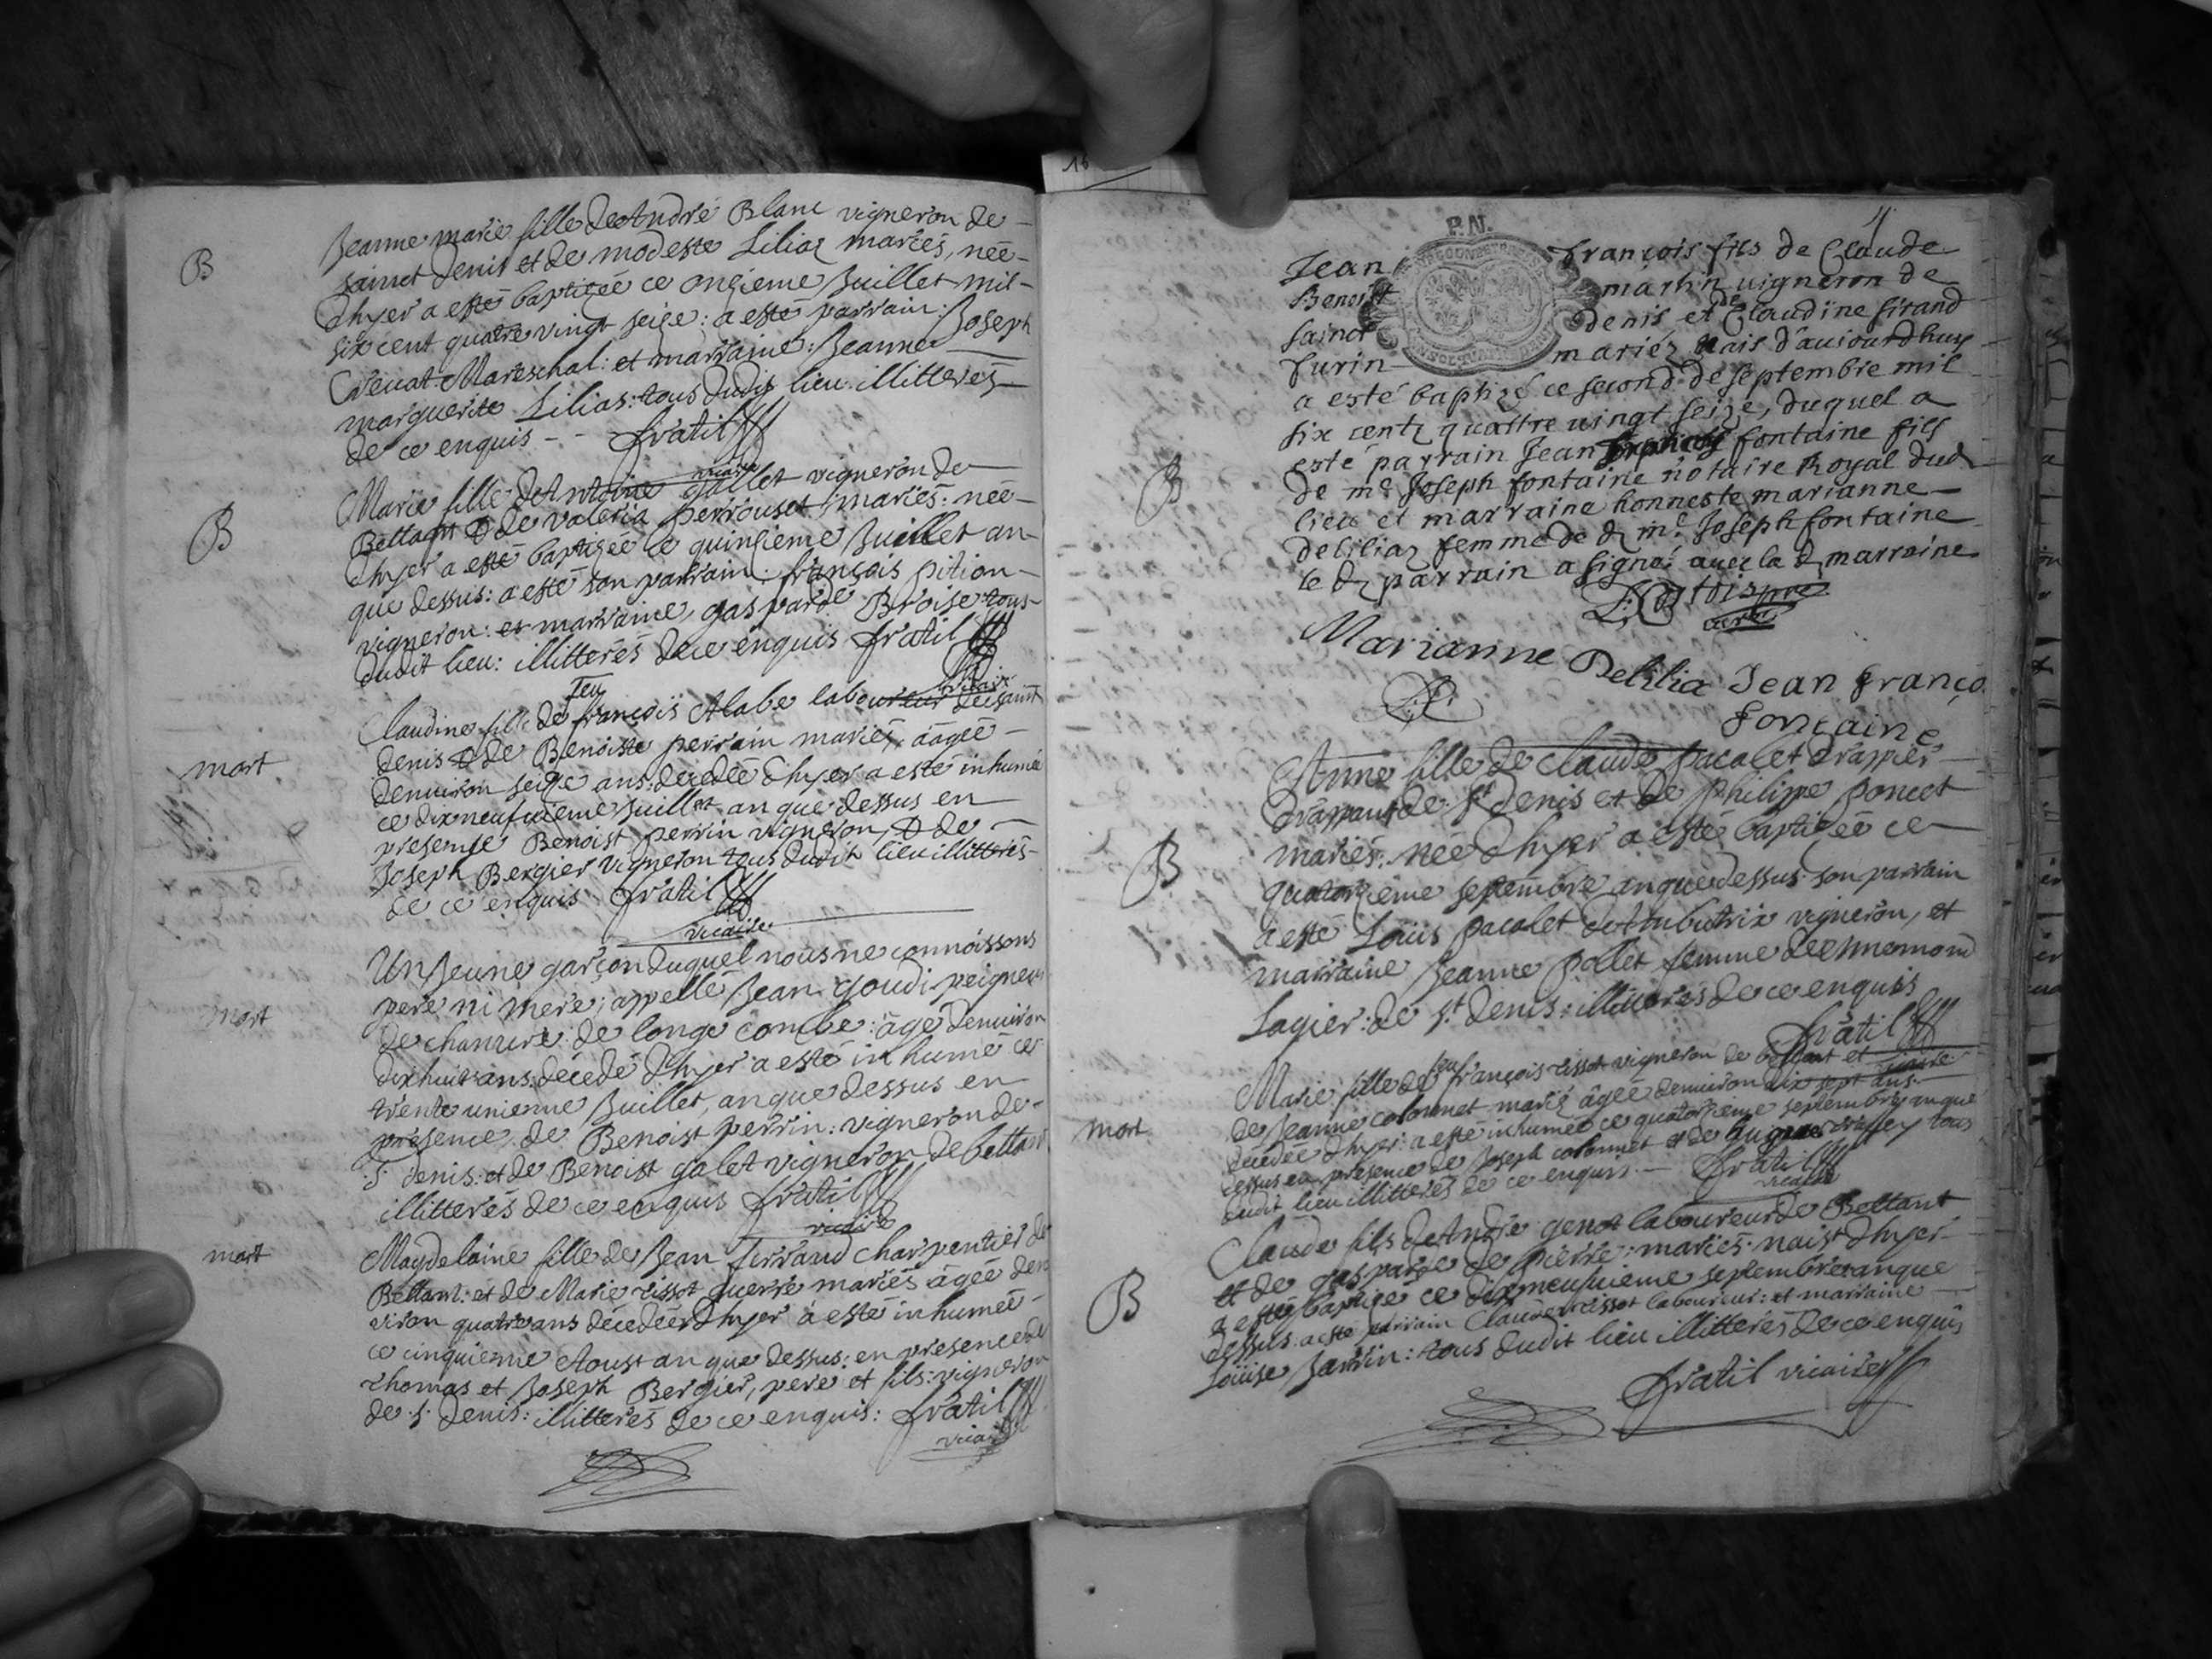 B
Jeanne marie fille de André Blanc vigneron de
sainct denis et de modeste Liliaz mariés, née
d'hyer a esté baptizée ce onzieme Juillet mil
six cent quatre vingt seize: a esté parrain: Joseph
Creuat Mareschal: et marraine: Jeanne
marguerite Lilias: tous dudit lieu illitterés
de ce enquis - - fratil
vicaire
B
Marie fille de Antoine gallet vigneron de
Bettant & de valeria perrouset mariés: née
d'hyer a esté baptizée le quinzieme Juillet an
que dessus: a esté son parrain: françois pition
vigneron: et marraine, gasparde Broise tous
dudit lieu: illitterés de ce enquis fratil
vicaire
mort
Claudine fille de feu françois Alabe laboureur de saint
denis & de Benoiste perrain mariés, âagée
denuiron seize ans: decedée d'hyer a esté inhumée
ce dixneufuieme Juillet an que dessus en
presence Benoist perrin vigneron & de
Joseph Bergier vigneron tous dudit lieu illitterés
de ce enquis fratil
vicaire
mort
Un Jeune garçon duquel nous ne connoissons
pere ni mere; appellé Jean goudi peigneur
de chanure: de longe combe: âgé denuiron
dix huit ans: décedé d'hyer a esté inhumé ce
trente unieme Juillet, an que dessus en
presence de Benoist perrin: vigneron de
S denis: et de Benoist galet vigneron de bettant
illitterés de ce enquis fratil
vicaire
mort
Magdelaine fille de Jean ferraud charpentier de
Bettant: et de Marie tissot guerre mariés âgée den
viron quatre ans décedée d'hyer a esté inhumée
ce cinquieme Aoust an que dessus: en presence de
thomas et Joseph Bergier, pere et fils: vigneron
de s. denis: illitterés de ce enquis: fratil
vicaire
P.N.
Jean françois fils de Claude
Benoist martin uigneron de
sainct denis et de Claudine sirand
furin mariéz nais d'auiourdhuy
a esté baptizé ce second de septembre mil
six centz quattre uingt seize, duquel a
esté parrain Jean fontaine fils
B
de me. Joseph fontaine notaire Royal dud
lieu et marraine honneste marianne
delilia femme de d me. Joseph fontaine
le d parrain a signé auec la d marraine
Marianne Delilia Jean franço
fontaine
B
Anne fille de claude pacalet drappier
drappant de st denis et de philippe poncet
mariés: née d'hyer a esté baptizée ce
quatorzieme septembre an que dessus son parrain
a esté Loüis pacalet d'Ambutrix vigneron, et
marraine Jeanne pollet femme de Ennemond
Lagier: de st denis: illitterés de ce enquis
fratil
vicaire
mort
Marie fille de feu françois tissot vigneron de bettant et
de Jeanne colomnet mariez âgée denuiron dix sept ans:
decedée d'hyer: a esté inhumée ce quatorzieme septembre an que
dessus en presence de Joseph colomnet & de tous
dudit lieu illitterés de ce enquis: — fratil
vicaire
B
Claude fils de André genot laboureur de Bettant
et de gasparde de pierre: mariés: naist d'hyer
a esté baptizé ce dixneufuieme septembre: an que
dessus a esté parrain Claude tissot laboureur: et marraine
Loüise Jarrin: tous dudit lieu illitterés de ce enquis
fratil vicaire